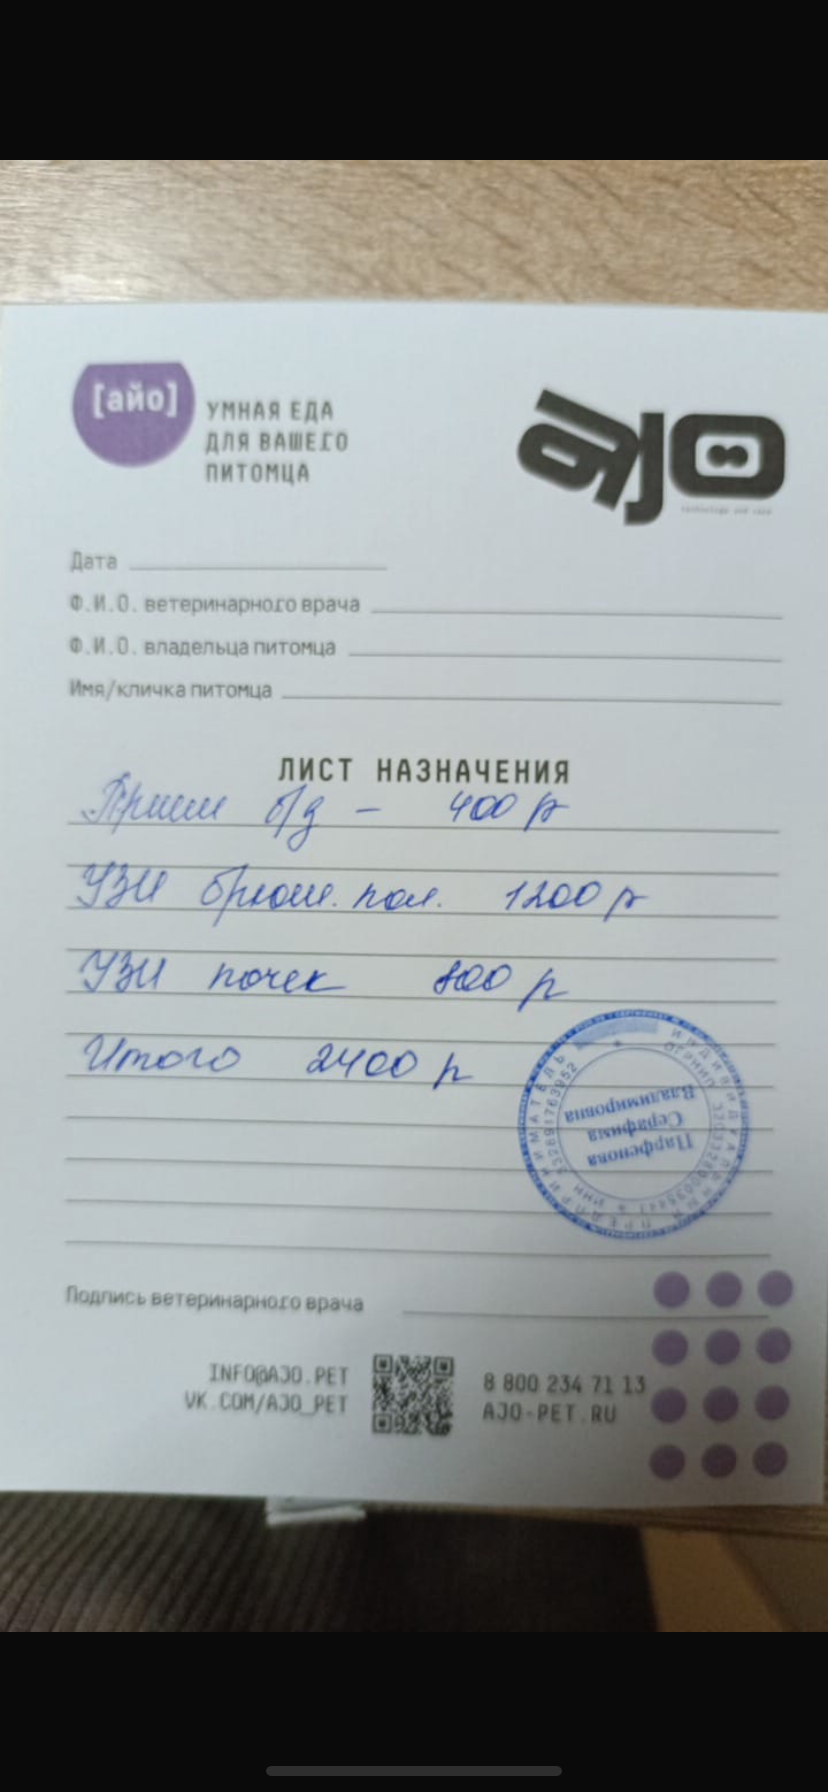 [айо]
УМНАЯ ЕДА
ДЛЯ ВАШЕГО
ПИТОМЦА
AJO
Дата
Ф.И.О. ветеринарного врача
Ф.И.О. владельца питомца
Имя/кличка питомца
ЛИСТ НАЗНАЧЕНИЯ
Прием б/д – 400 р
УЗИ брюш. пол. 1200 р
УЗИ почек 800 р
Итого 2400 р
ИНДИВИДУАЛЬНЫЙ ПРЕДПРИНИМАТЕЛЬ
ОГРНИП
ИНН
Парфенова
Серафима
Владимировна
Подпись ветеринарного врача
INFO@AJO.PET
VK.COM/AJO_PET
8 800 234 71 13
AJO-PET.RU